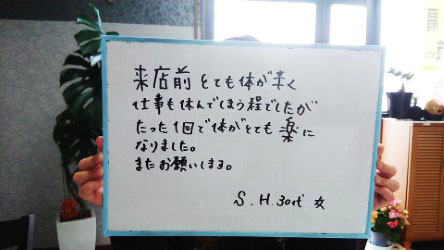 来店前 とても体が辛く
仕事も休んでしまう程でしたが
たった1回で体がとても楽に
なりました。
またお願いします。
S.H.30代 女